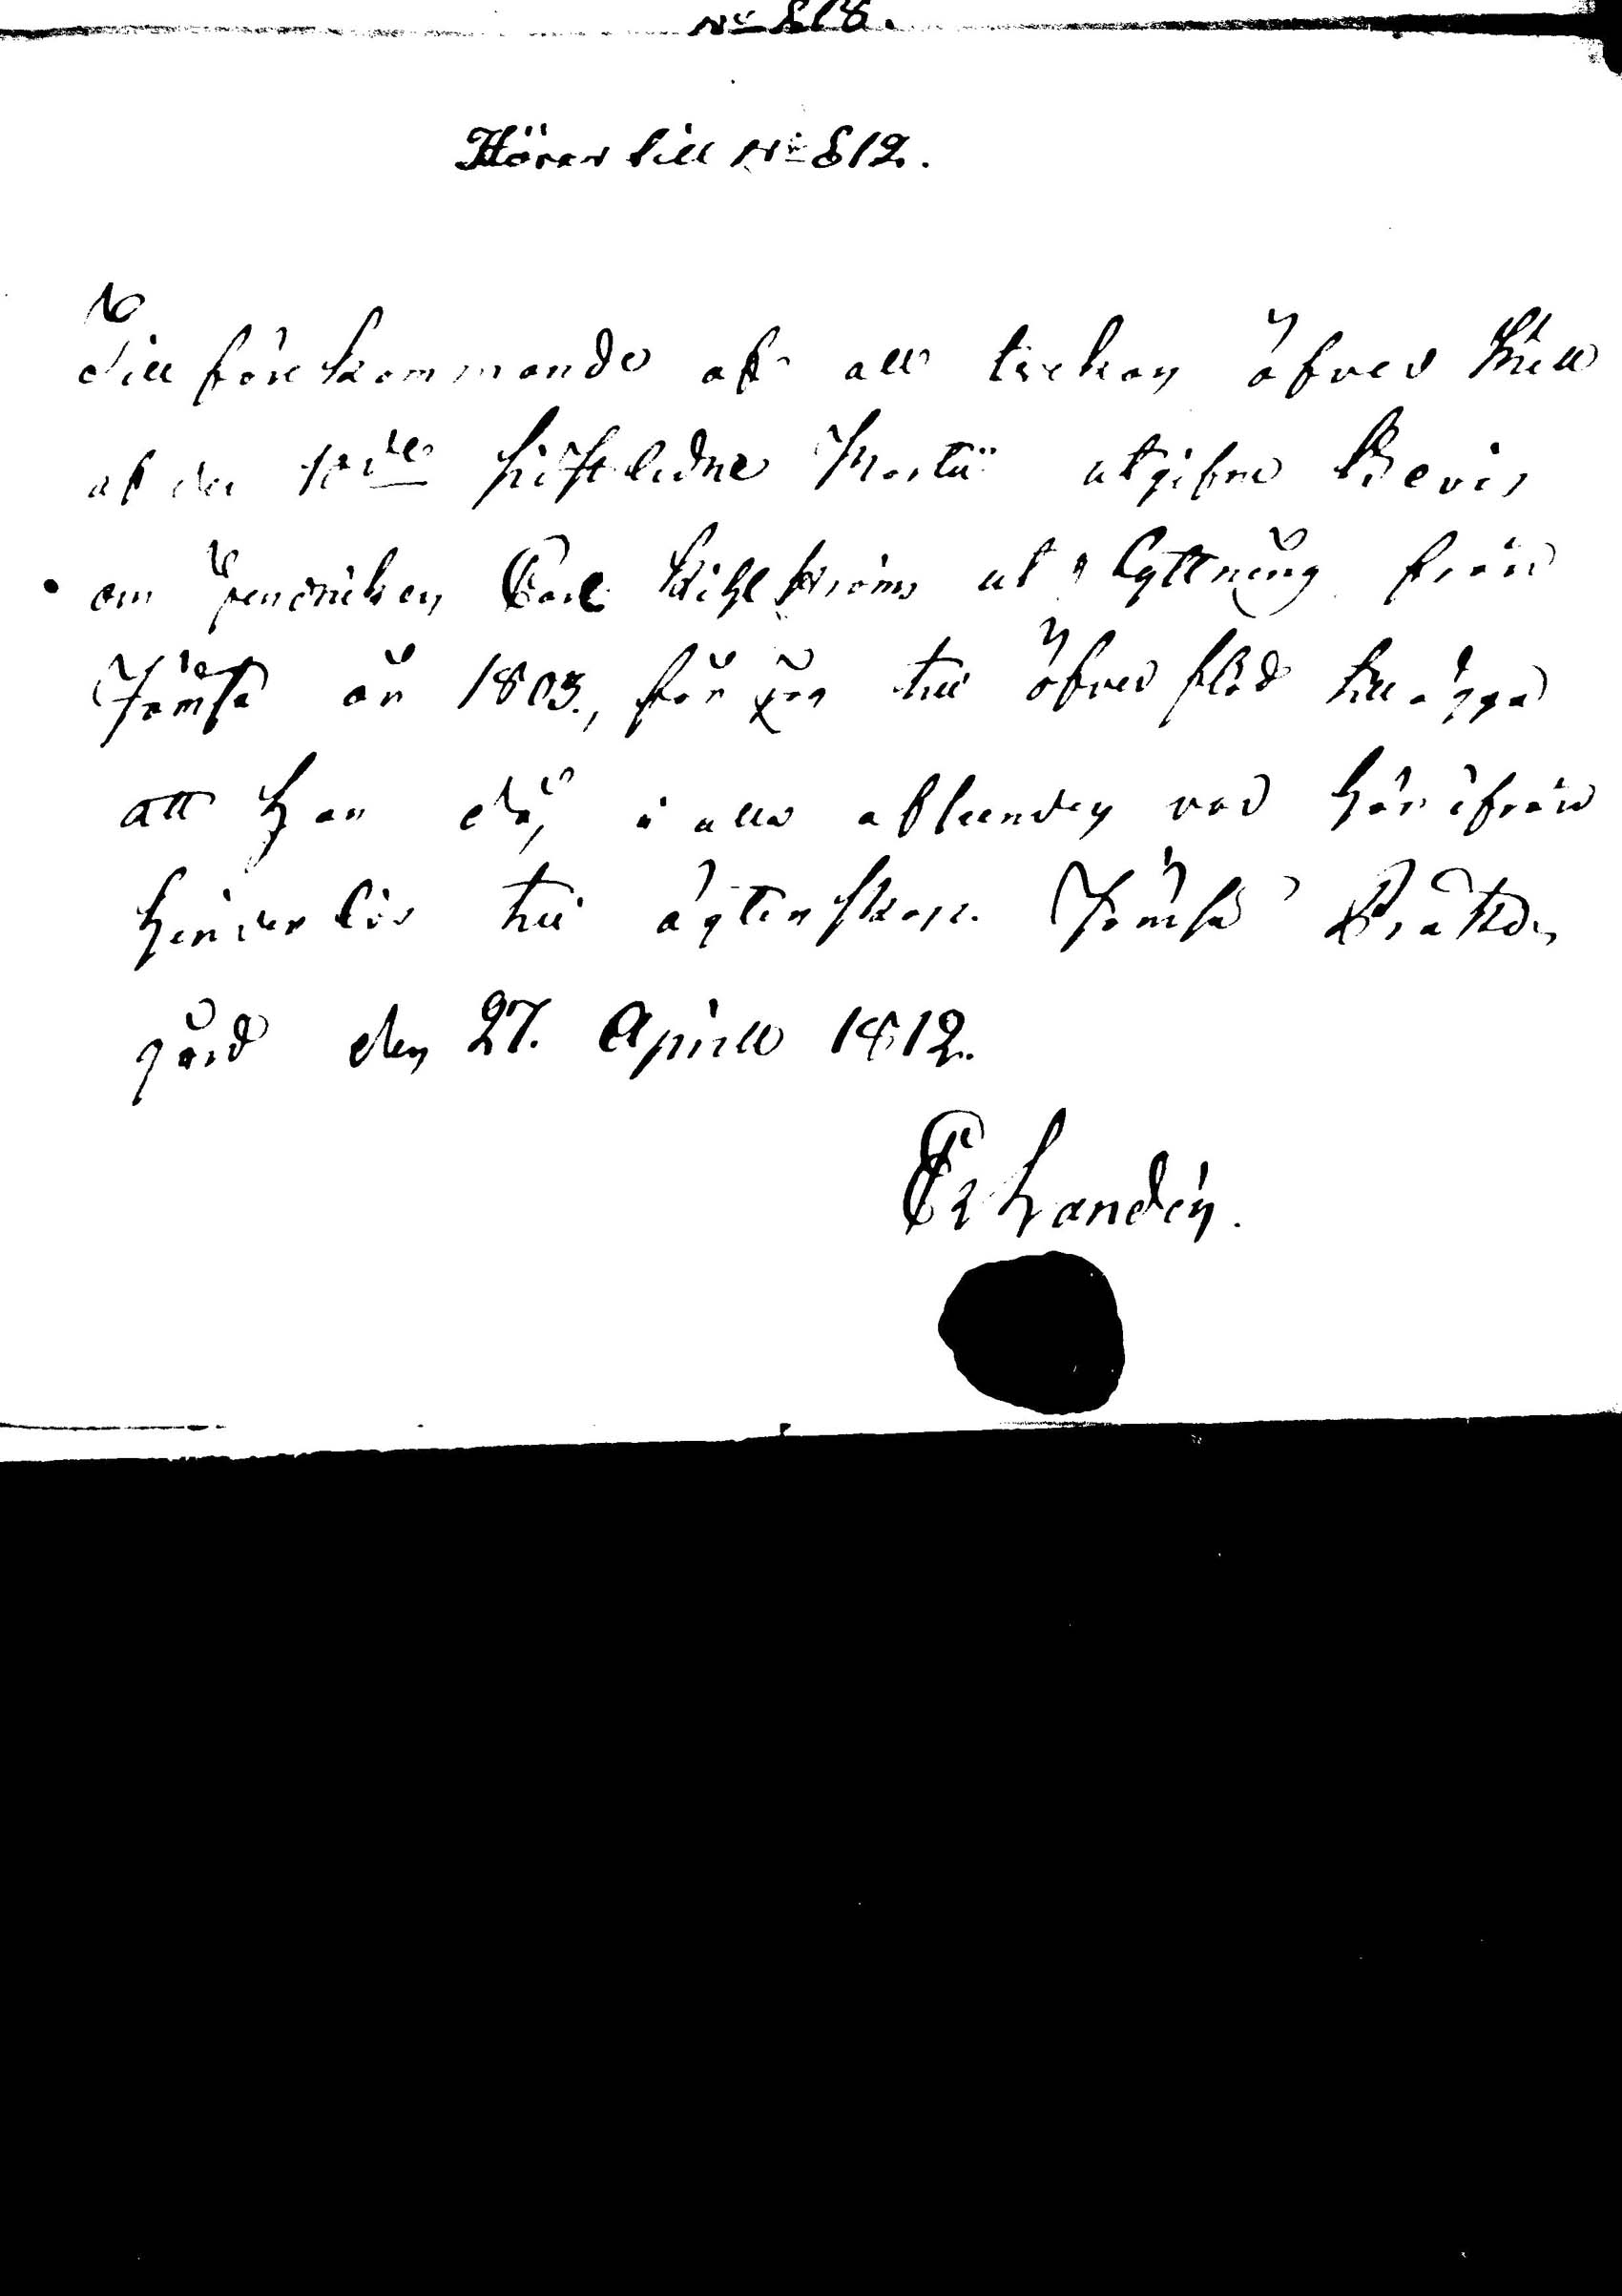 No 818.
Hörer till No 812.
Till förekommande af all tvekan öfver
af den 10de sistledne Martii utgifne Bevis
om Carl Kihlströms utflyttning från
Jämsä år 1803., får jag till öfverflöd tillägga
att han då, i alla afseenden var härifrån
hinderlös till ägtenskap. Jämsä Präste
gård den 27. Aprill 1812.
Er Landén.